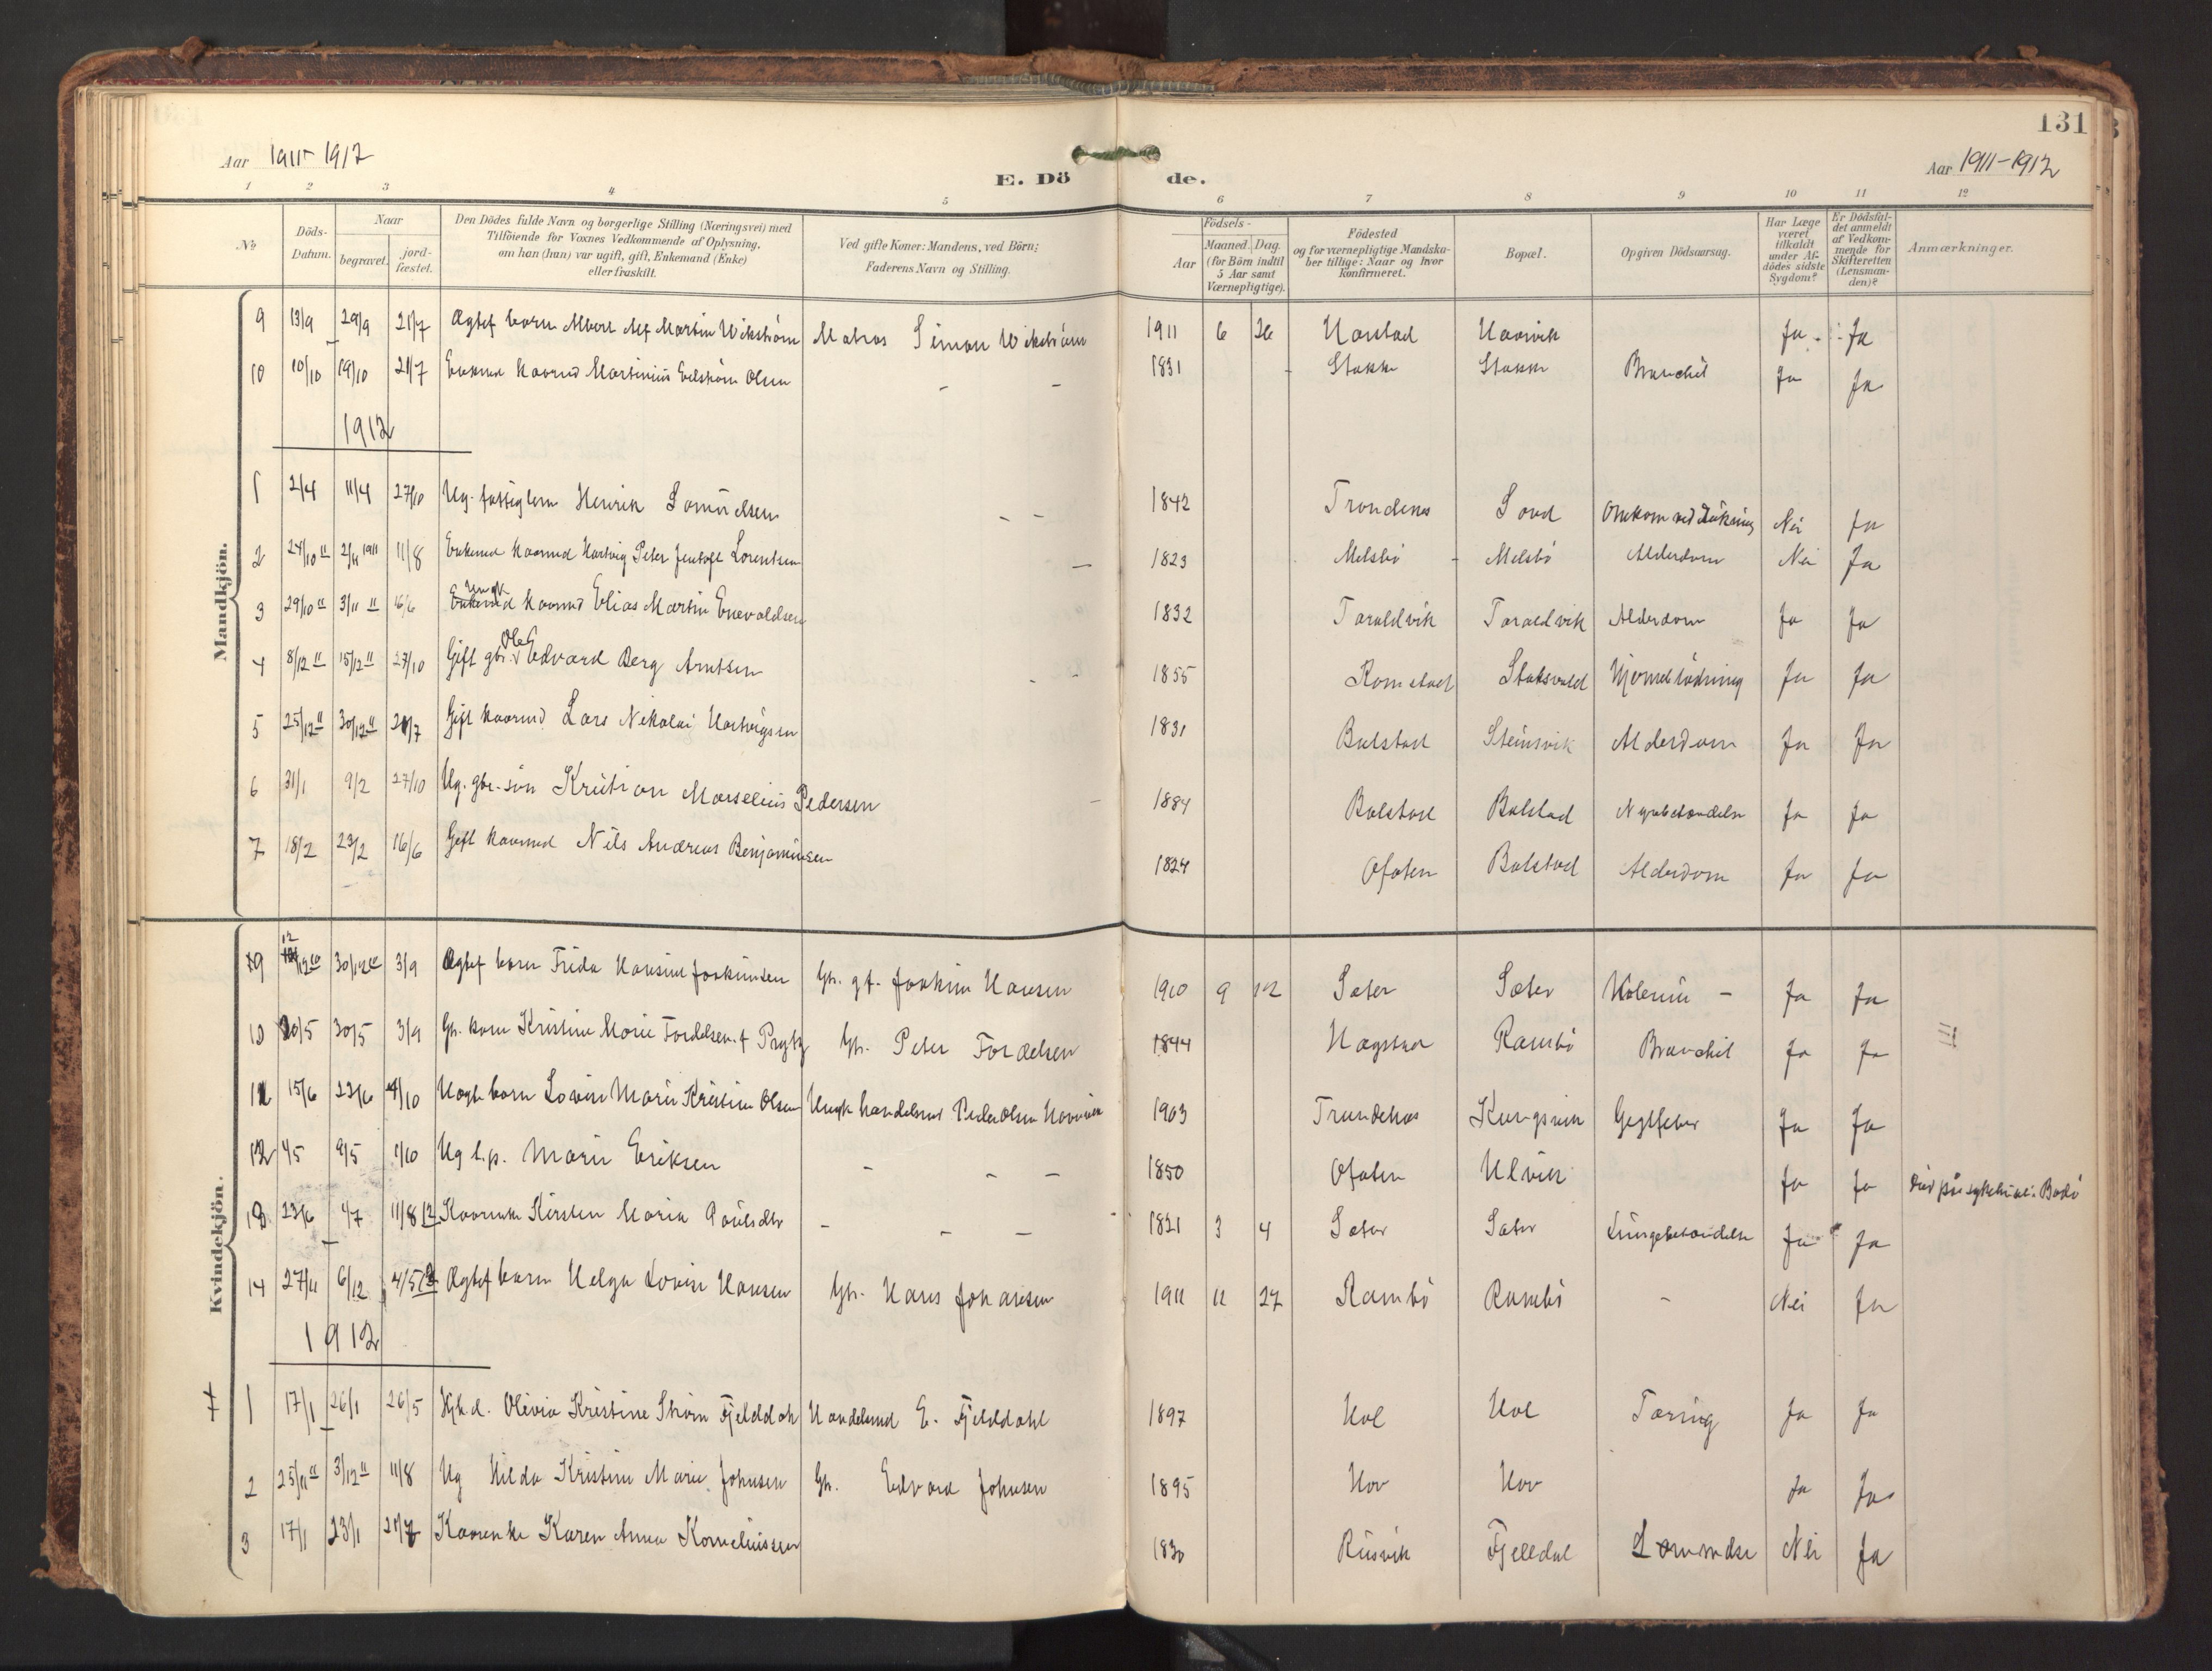 131
Aar 1911-1912
E. Dö de.
Aar 1911-1912
1 2 3 4 5 6 7 8 9 10 11 12
No
Döds-Datum.
Naar
begravet.
jord-fæstet.
Den Dödes fulde Navn og borgerlige Stilling (Næringsvei) med
Tilföiende for Voxnes Vedkommende af Oplysning,
om han (hun) var ugift, gift, Enkemand (Enke)
eller fraskilt.
Ved gifte Koner: Mandens, ved Börn:
Faderens Navn og Stilling.
Födsels-
Aar
Maaned. Dag.
(for Börn indtil
5 Aar samt
Værnepligtige).
Födested
og for værnepligtige Mandska-
ber tillige: Naar og hvor
Konfirmeret.
Bopæl.
Opgiven Dödsaarsag.
Har Læge
været
tilkaldt
under Af-
dödes sidste
Sygdom?
Er Dödsfal-
det anmeldt
af Vedkom-
mende for
Skifteretten
(Lensman-
den)?
Anmærkninger.
Mandkjön.
9 13/9 29/9 21/7 Ægtef barn Albert Alf Martin Wikström Matros Simon Wikström 1911 6 26 Harstad Haavik Ja Ja
10 10/10 19/10 21/7 Enkemd kaarmd Martinius Edström Olsen - - 1831 Stokke Stokke Bronchit Ja Ja
1912
1 2/4 11/4 27/10 Ug. fattiglem Henrik Samuelsen - - 1842 Trondenes Sand Omkom ved Nei Ja
2 24/10 11 2/11 1911 11/8 Enkemd kaarmd Hartvig Peter Jentoft Lorentsen - 1823 Melsbö Melsbö Alderdom Nei Ja
3 29/10 11 3/11 11 16/6 Enkemd ungk kaarmd Elias Martin Enevoldsen 1832 Taraldvik Taraldvik Alderdom Ja Ja
4 8/12 11 15/12 11 27/10 Gift gbr. Ole Edvard Berg Arntsen - - 1855 Ramstad Ja Ja
5 25/12 11 30/12 11 21/7 Gift kaarmd Lars Nikolai Hartvigsen 1831 Balstad Steinsvik Alderdom Ja Ja
6 31/1 9/2 27/10 Ug. gbr.-sön Kristian Marselius Pedersen - 1884 Balstad Balstad Nyrebetændelse Ja Ja
7 18/2 23/2 16/6 Gift kaarmd Nils Andreas Benjaminsen 1824 Ofoten Balstad Alderdom Ja Ja
Kvindekjön.
9 12/12 10 30/12 10 3/9 Ægtef barn Frida Hansine Joakimsen Gbr. gf. Joakim Hansen 1910 9 12 Sæter Sæter Kolerine - Ja Ja
10 20/5 30/5 3/9 Gb. kone Kristine Marie Tordelsen f Prytz Gb. Peter Tordelsen 1844 Hagstad Rambö Bronchit Ja Ja
11 15/6 23/6 4/10 Uægte barn Lovise Marie Kristine Olsen Ungk handelsmd Peder Olsen 1903 Trondenes Kongsvik Gigtfeber Ja Ja
12 4/5 9/5 1/10 Ug t.p. Marie Eriksen - - - 1850 Ofoten Ulvik Ja Ja död på sykehuset i Bodö
13 23/6 4/7 11/8 12 Kaarenke Kirsten Maria Paulsdtr - - - 1821 3 4 Sæter Sæter Lungebetændelse Ja Ja
14 27/11 6/12 4/5 12 Ægtef barn Helga Lovise Hansen Gbr. Hans Johansen 1911 11 27 Rambö Rambö - Nei Ja
1912
1 17/1 26/1 26/5 Olivia Kristine Ström Fjelddahl Handelsmd E. Fjelddahl 1897 Hol Hol Tæring Ja Ja
2 25/11 11 3/12 11 11/8 Ug Hilda Kristine Marie Johnsen Gbr. Edvard Johnsen 1895 Hov Hov Ja Ja
3 17/1 23/1 21/7 Kaarenke Karen Anna Korneliussen 1830 Risvik Fjelldal Nei Ja